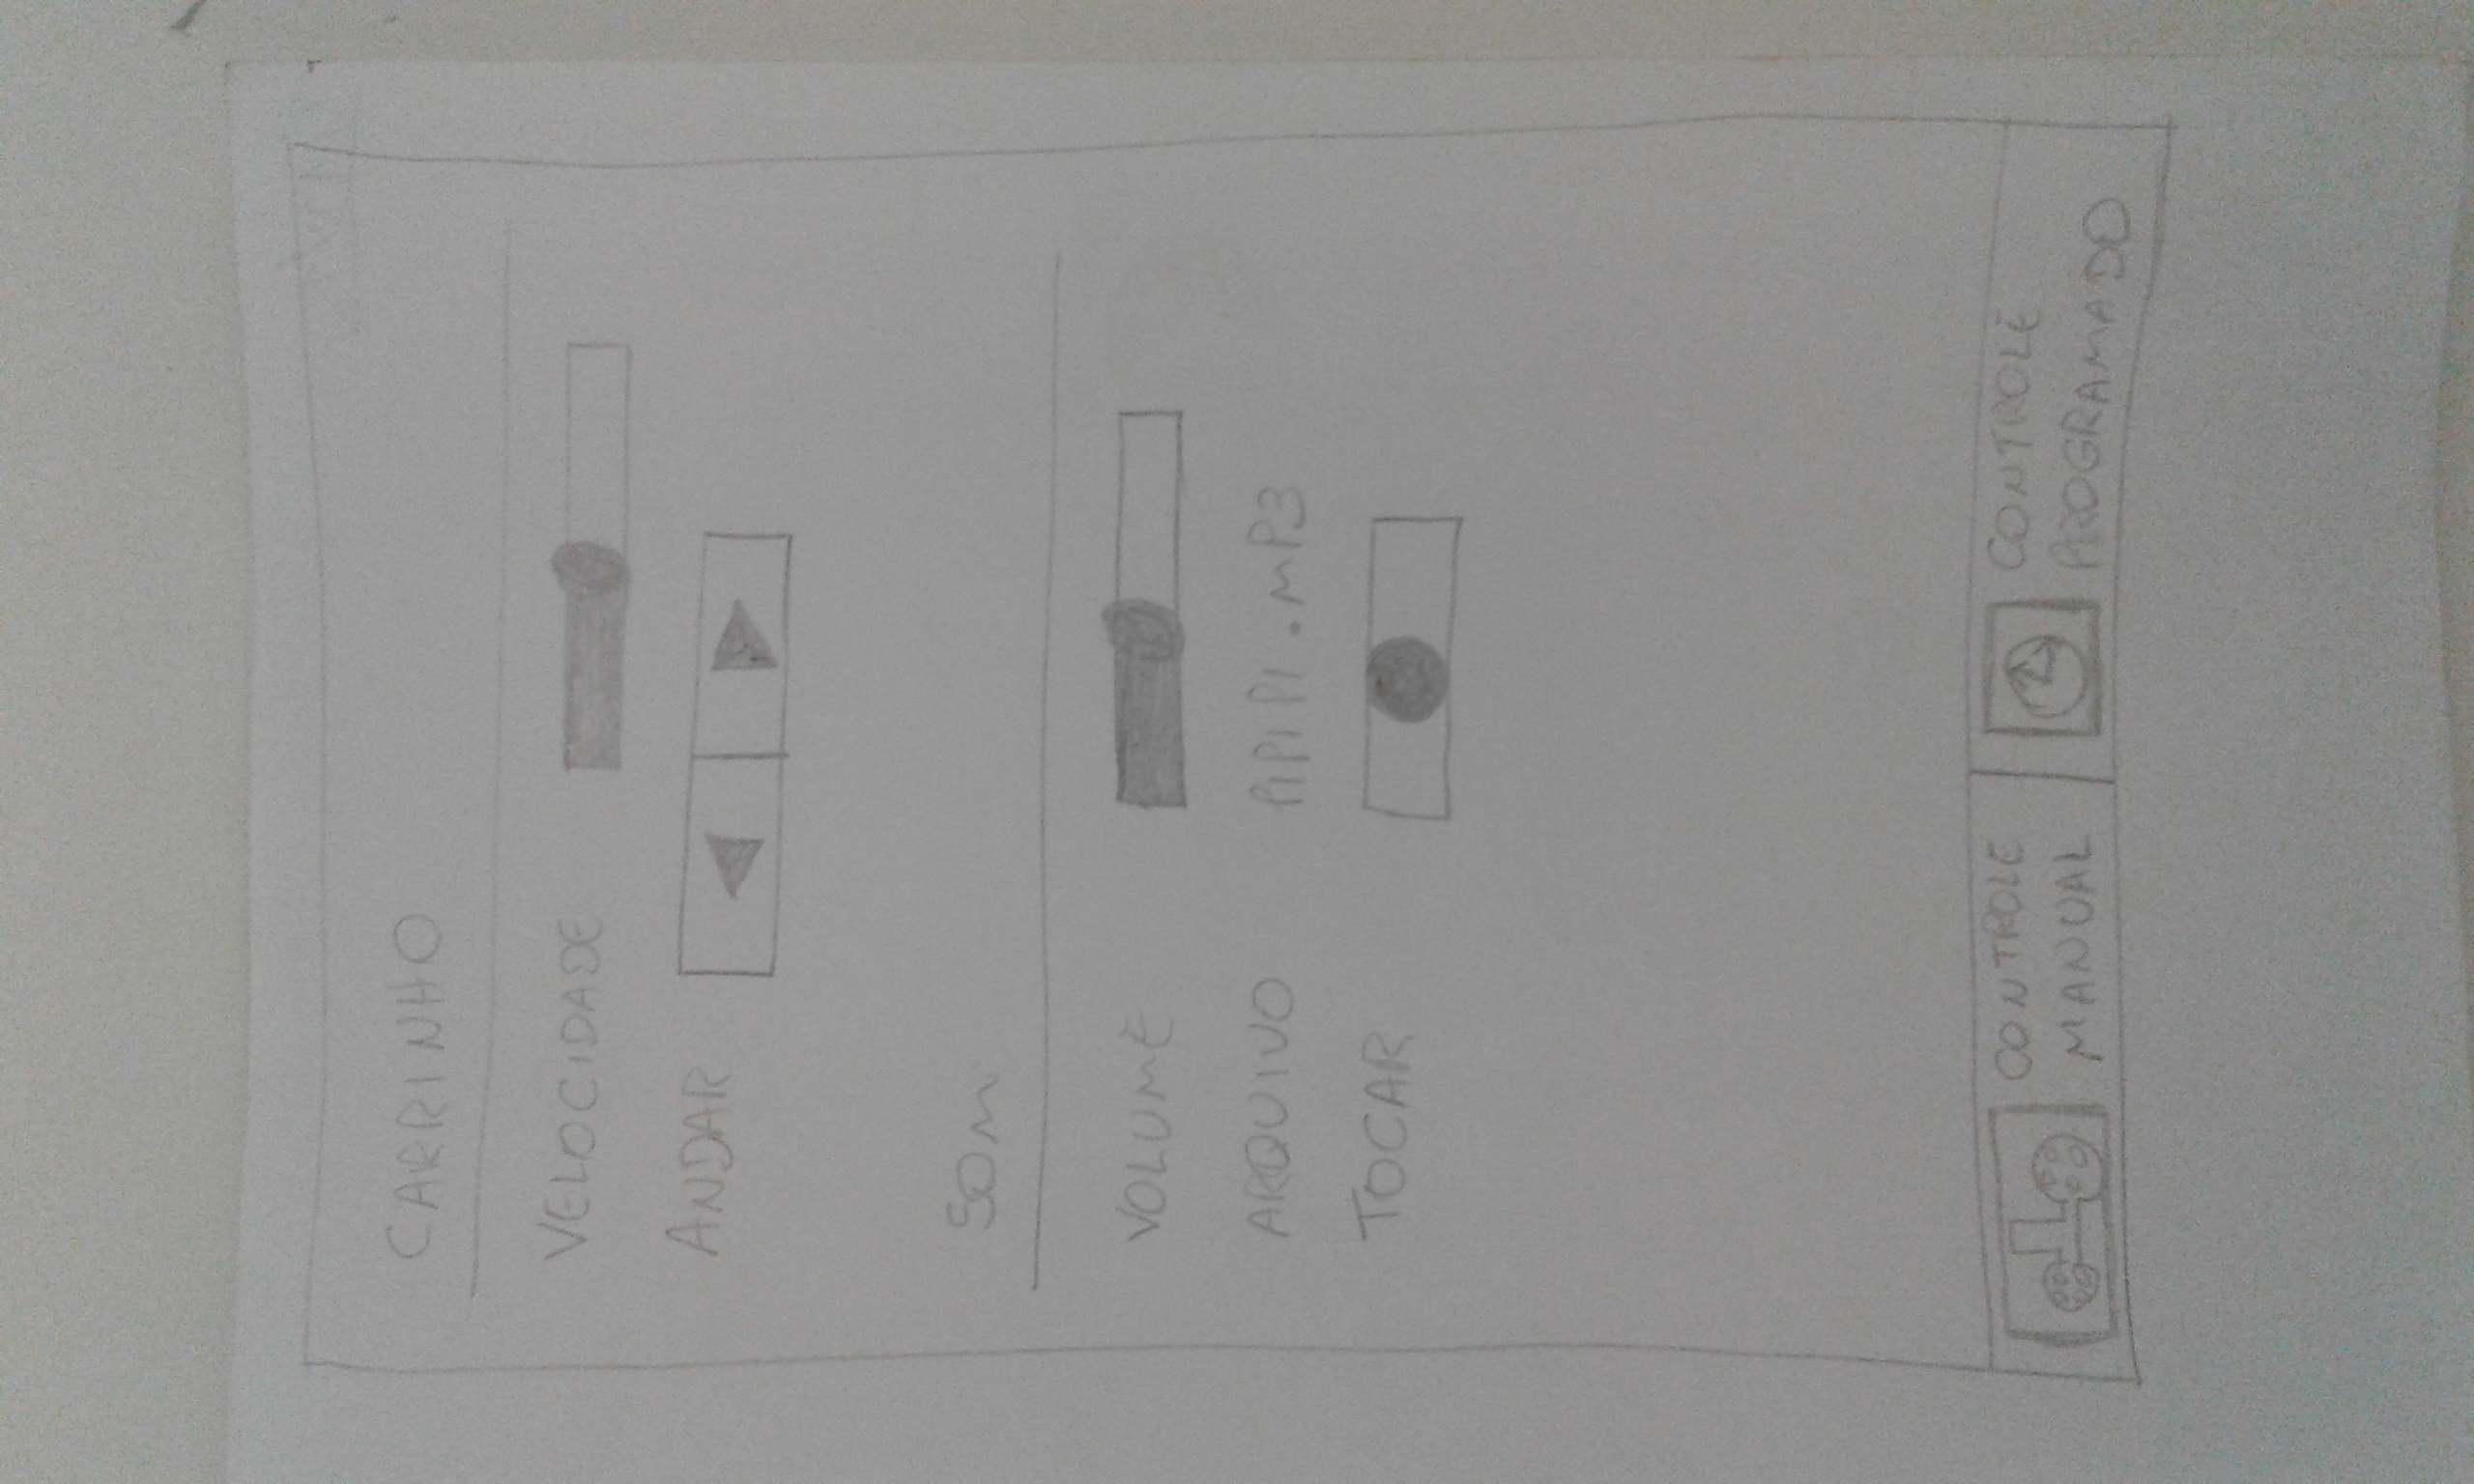 CARRINHO
VELOCIDADE
ANDAR
SOM
VOLUME
ARQUIVO PIPIPI.MP3
TOCAR
CONTROLE
MANUAL
CONTROLE
PROGRAMADO